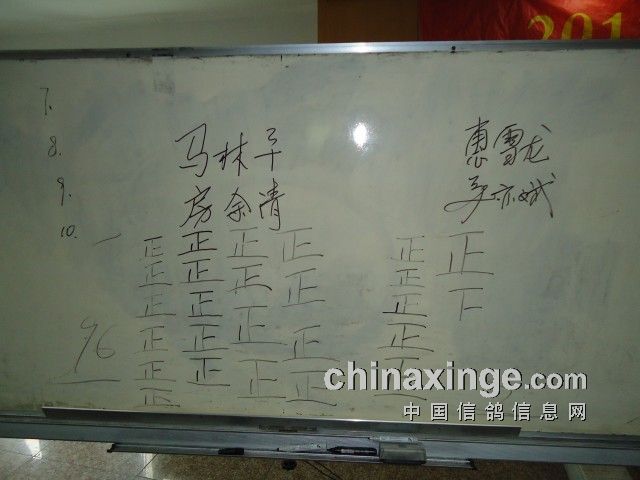 201
7.
8.
9.
10.
马林平
房余清
惠雪龙
吴亦斌
正 正 正 正
正 正 正 正
正 正 正 正
正 正 正 正
正 正
正
正 正
正 下
正
正
正
96
chinaxinge.com
中国信鸽信息网